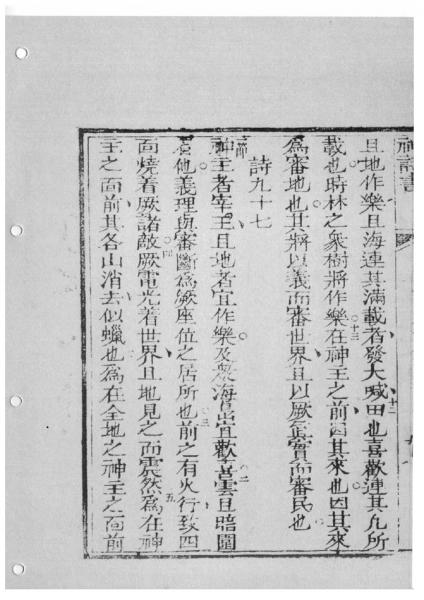 神詩書
且地作樂且海連其滿載者發大喊田也喜歡連其凡所
十二
載也時林之衆樹將作樂在神王之前因其來也因其來
十三
為審地也其將以義而審世界且以厥真實而審民也
詩九十七
一節
神王者宰王且地者宜作樂及衆海島宜歡喜雲且暗圍
二
他義理與審斷為厥座位之居所也前之有火行致四
三
向燒着厥諸敵厥電光着世界且地見之而震然為在神
四
五
王之面前其各山消去似蠟也為在全地之神王之面前